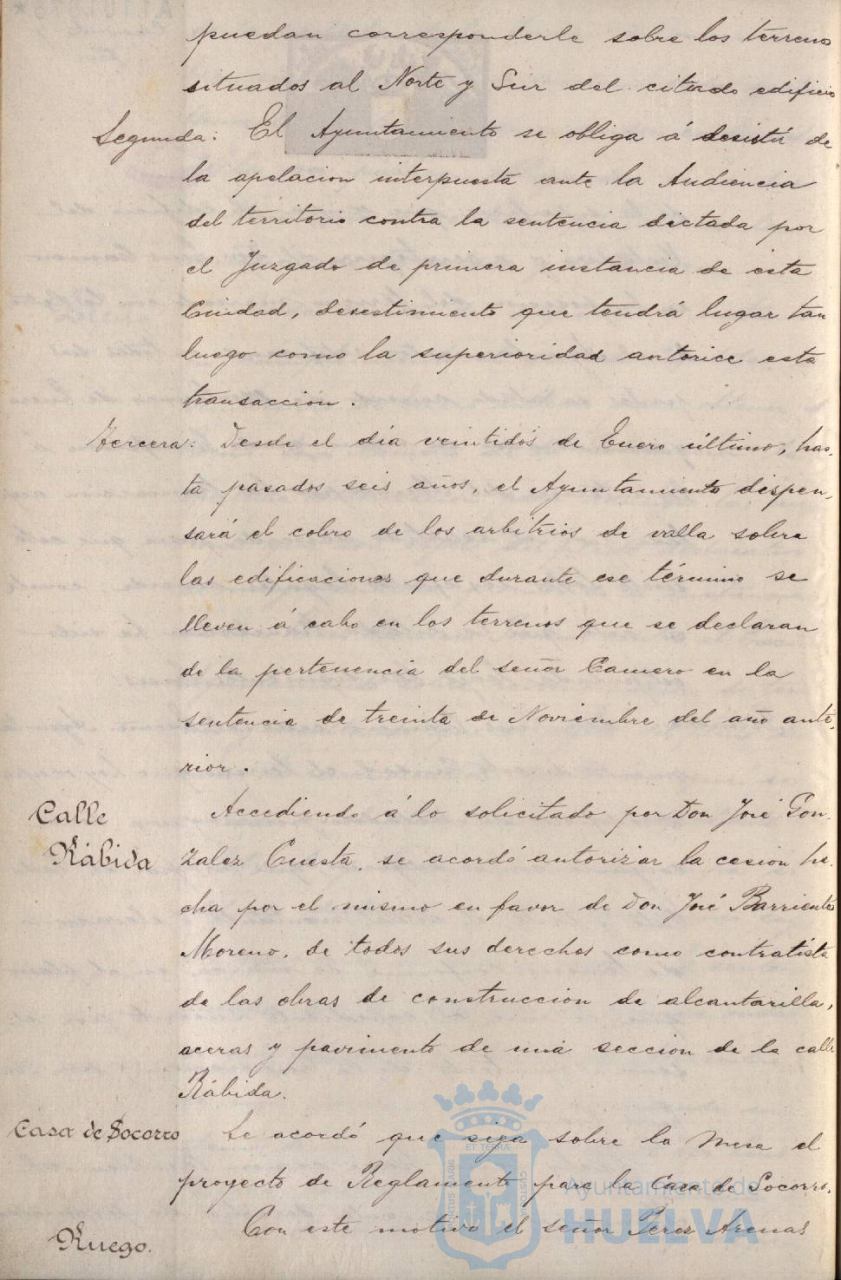 puedan corresponderle sobre los terrenos
situados al Norte y Sur del citado edificio
Segunda: El Ayuntamiento se obliga á desistir de
la apelacion interpuesta ante la Audiencia
del territorio contra la sentencia dictada por
el Juzgado de primera instancia de esta
Ciudad, desestimiento que tendrá lugar tan
luego como la superioridad autorice esta
transaccion.
Tercera: Desde el día veintidós de Enero último, has-
ta pasados seis años, el Ayuntamiento dispen-
sará el cobro de los arbitrios de valla sobre
las edificaciones que durante ese término se
lleven á cabo en los terrenos que se declaran
de la pertenencia del señor Camero en la
sentencia de treinta de Noviembre del año ante-
rior.
Calle
Rábida
Accediendo á lo solicitado por Don José Gon-
zalez Cuesta, se acordó autorizar la cesion he-
cha por el mismo en favor de Don José Barrientos
Moreno, de todos sus derechos como contratista
de las obras de construccion de alcantarilla,
aceras y pavimento de una seccion de la calle
Rábida.
Casa de Socorro
Se acordó que siga sobre la Mesa el
proyecto de Reglamento para la Casa de Socorro.
Ruego.
Con este motivo el señor Perez Arenas
Ayuntamiento de
HUELVA